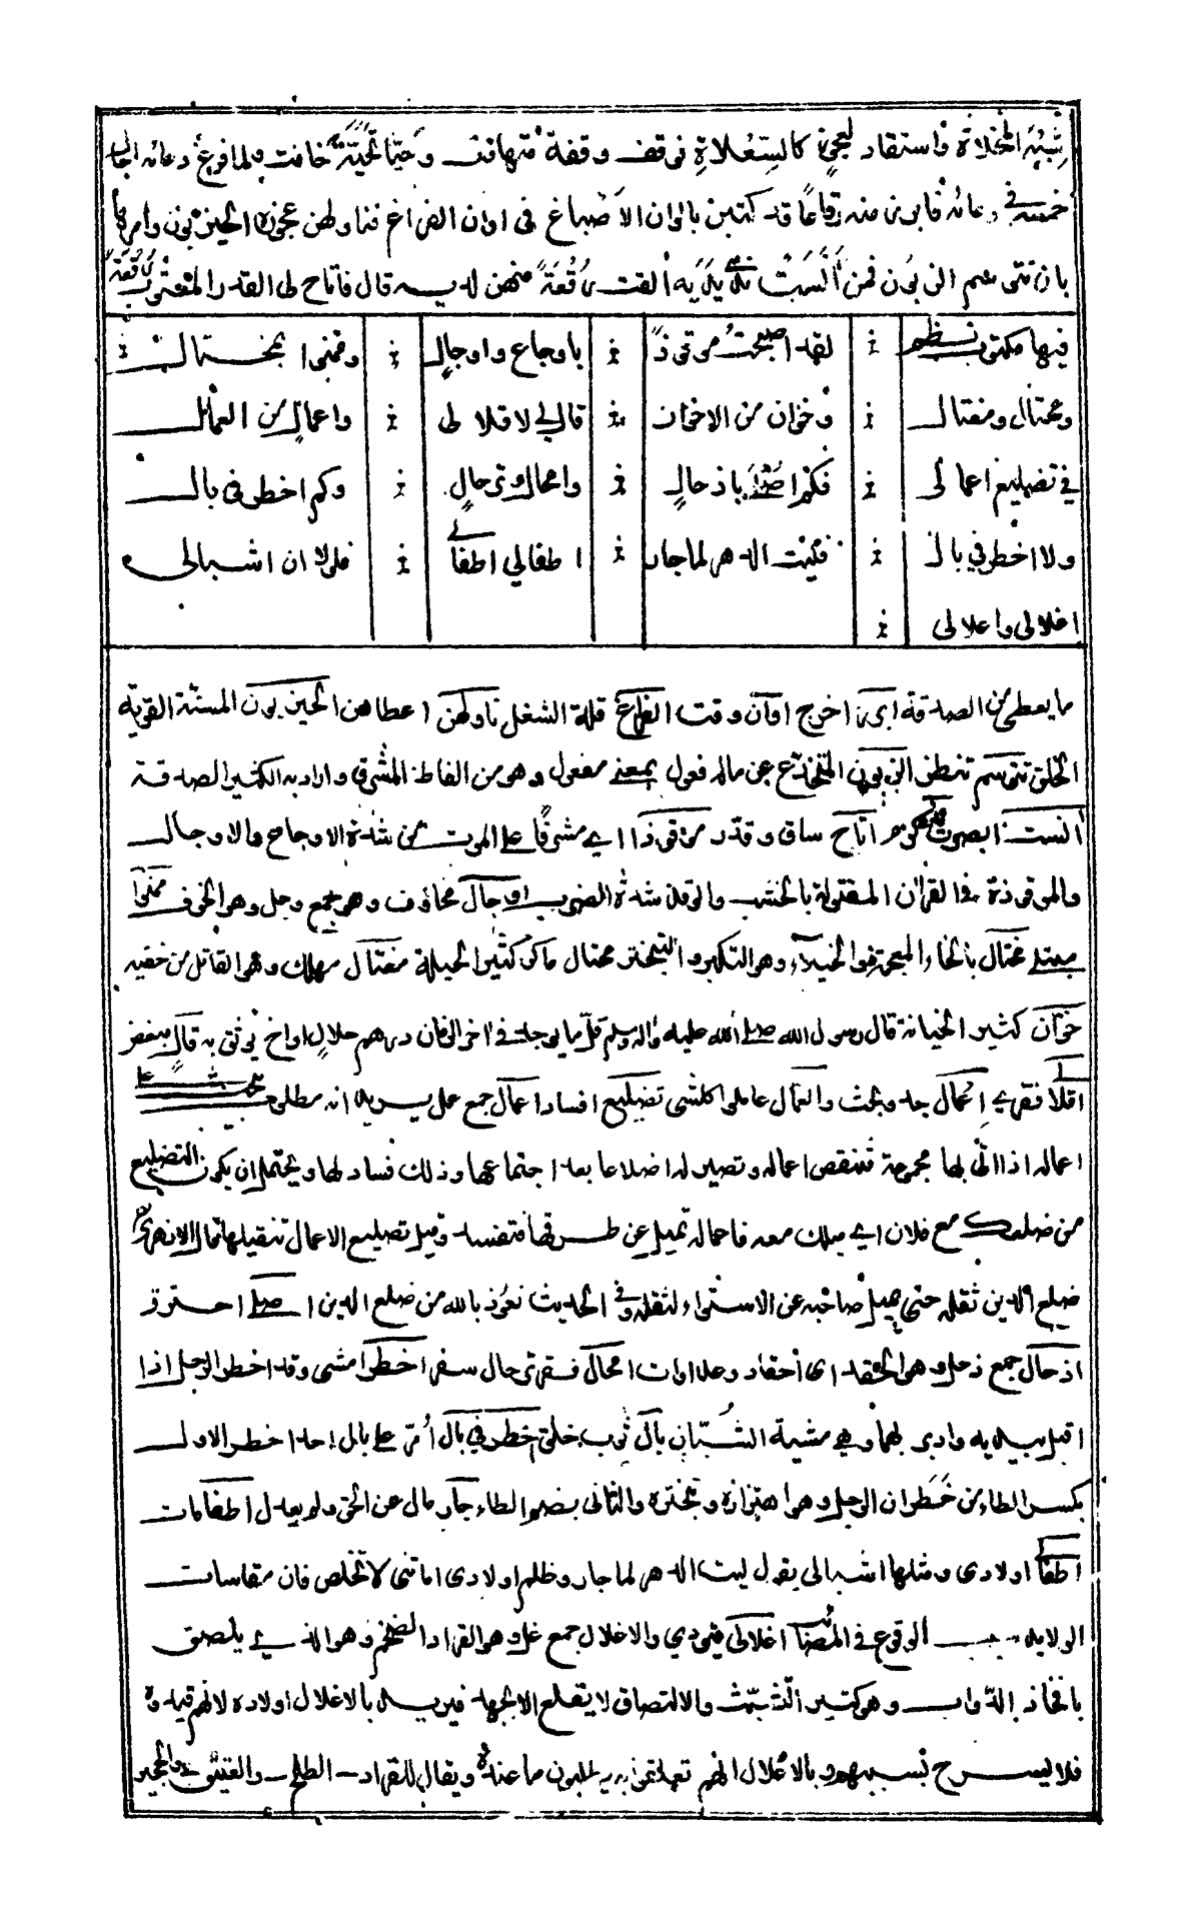 شِبْهَ المِخْلاة واستقاد لعجوز كالسِّعْلاةِ فوقف وقفة مُتهافت وحيّا تحيّةَ خافت ولما فرغ من دعائه اجال
خمسه في وعائه فابرز منه رقاعًا قد كتبن بالوان الأصباغ في اوان الفراغ فناولهن عجوزه الحيزبون وامرها
بان تتوسم الزبون فمن اٰنَسَتْ ندى يَدَيه ألقت رُقْعَةً منهن لديه قال فاتاح لي القدر المعتوب رُقْعَةً
فيها مكتوب نظم ؞ لقد اصبحتُ موقوذًا ؞ باوجاع واوجالٍ ؞ وممنوا بمختال ؞
ومحتال ومغتال ؞ وخوان من الاخوان ؞ قالٍ لي لاقلالي ؞ واعمالٍ من العمال
في تضليع اعمالي ؞ فكم اُصْلَى باذحالٍ ؞ وامحال وترحالٍ ؞ وكم اخطر في بال
ولا اخطر في بال ؞ فليت الدهر لما جار ؞ اطفا لي اطفالي ؞ فلولا ان اشبالي
اغلالي واعلالي ؞
ما يعطى من الصدقة ابرز اخرج اوان وقت الفراغ قلة الشغل ناولهن اعطاهن الحيزبون المسنّة القوية
الخلق تتوسم تنظر الزبون المنخدع عن ماله فعول بمعنى مفعول وهو من الفاظ المشرق واراد به الكثير الصدقة
اٰنست ابصرت اتاح ساق وقدّر موقوذا اي مشرفًا على الموت من شدة الاوجاع والاوجال
والموقوذة في القراٰن المقتولة بالخشب والوقذ شدة الضرب اوجال مخاوف وهو جمع وجل وهو الخوف ممنوا
مبتلى مختال بالخاء المعجمة ذو الخيلاء وهو التكبر والتبختر محتال ماكر كثير الحيلة مغتال مهلك وهو القاتل من خفيه
خوان كثير الخيانة قال رسول الله صلى الله عليه واٰله وسلم قلّ ما يوجد في اٰخر الزمان درهم حلال او اخ يوثق به قالٍ مبغض
اقلالي فقري اِعمال جد وبحث والعمال عاملوا كلشى تضليع افساد اعمال جمع عمل يريد انه مطلوب
اعماله اذا اتى بها مجموعة تنقص اعماله وتصير له اضلاعا بعد اجتماعها وذلك فسادلها ويحتمل ان يكون التضليع
من ضلعك مع فلان اي ميلك معه فاعماله تميل عن طرقها فتفسد وقيل تضليع الاعمال تثقيلها قال الازهري
ضلع الدين ثقله حتى يميل صاحبه عن الاستواء لثقله وفي الحديث نعوذ بالله من ضلع الدين اصلى احترق
اذحال جمع ذحل وهو الحقد اي احقاد وعداوات امحال فقر ترحال سفر اخطر امشي وقد اخطر الرجل اذا
اقبل بيديه وادبر بهما وهي مشية الشُبّان بال ثوب خلق اخطر في بال اُمرّ على بال احد اخطر الاول
بكسر الطاء من خَطَران الرجل وهو اهتزازه وتبختره والثاني بضم الطاء جار مال عن الحق ولم يعدل اطفا مات
اطفالي اولادي ومثلها اشبالي يقول ليت الدهر لما جار وظلم اولادي اماتني لاتخلص فان مقاسات
الولاية يوجب الوقوع في المصائب اغلالي قيودي والاغلال جمع غل وهو القراد الضخم وهو الذي يلصق
بافخاذ الدّواب وهو كثير التشبّث والالتصاق لا يقلع الا بجهد فيريد بالاغلال اولاده لانهم قيدوة
فلا يسرح بسببهم وبالاعلال انهم تعلقوا به يطلبون ما عنده ويقال للقراد الطلح والقتين